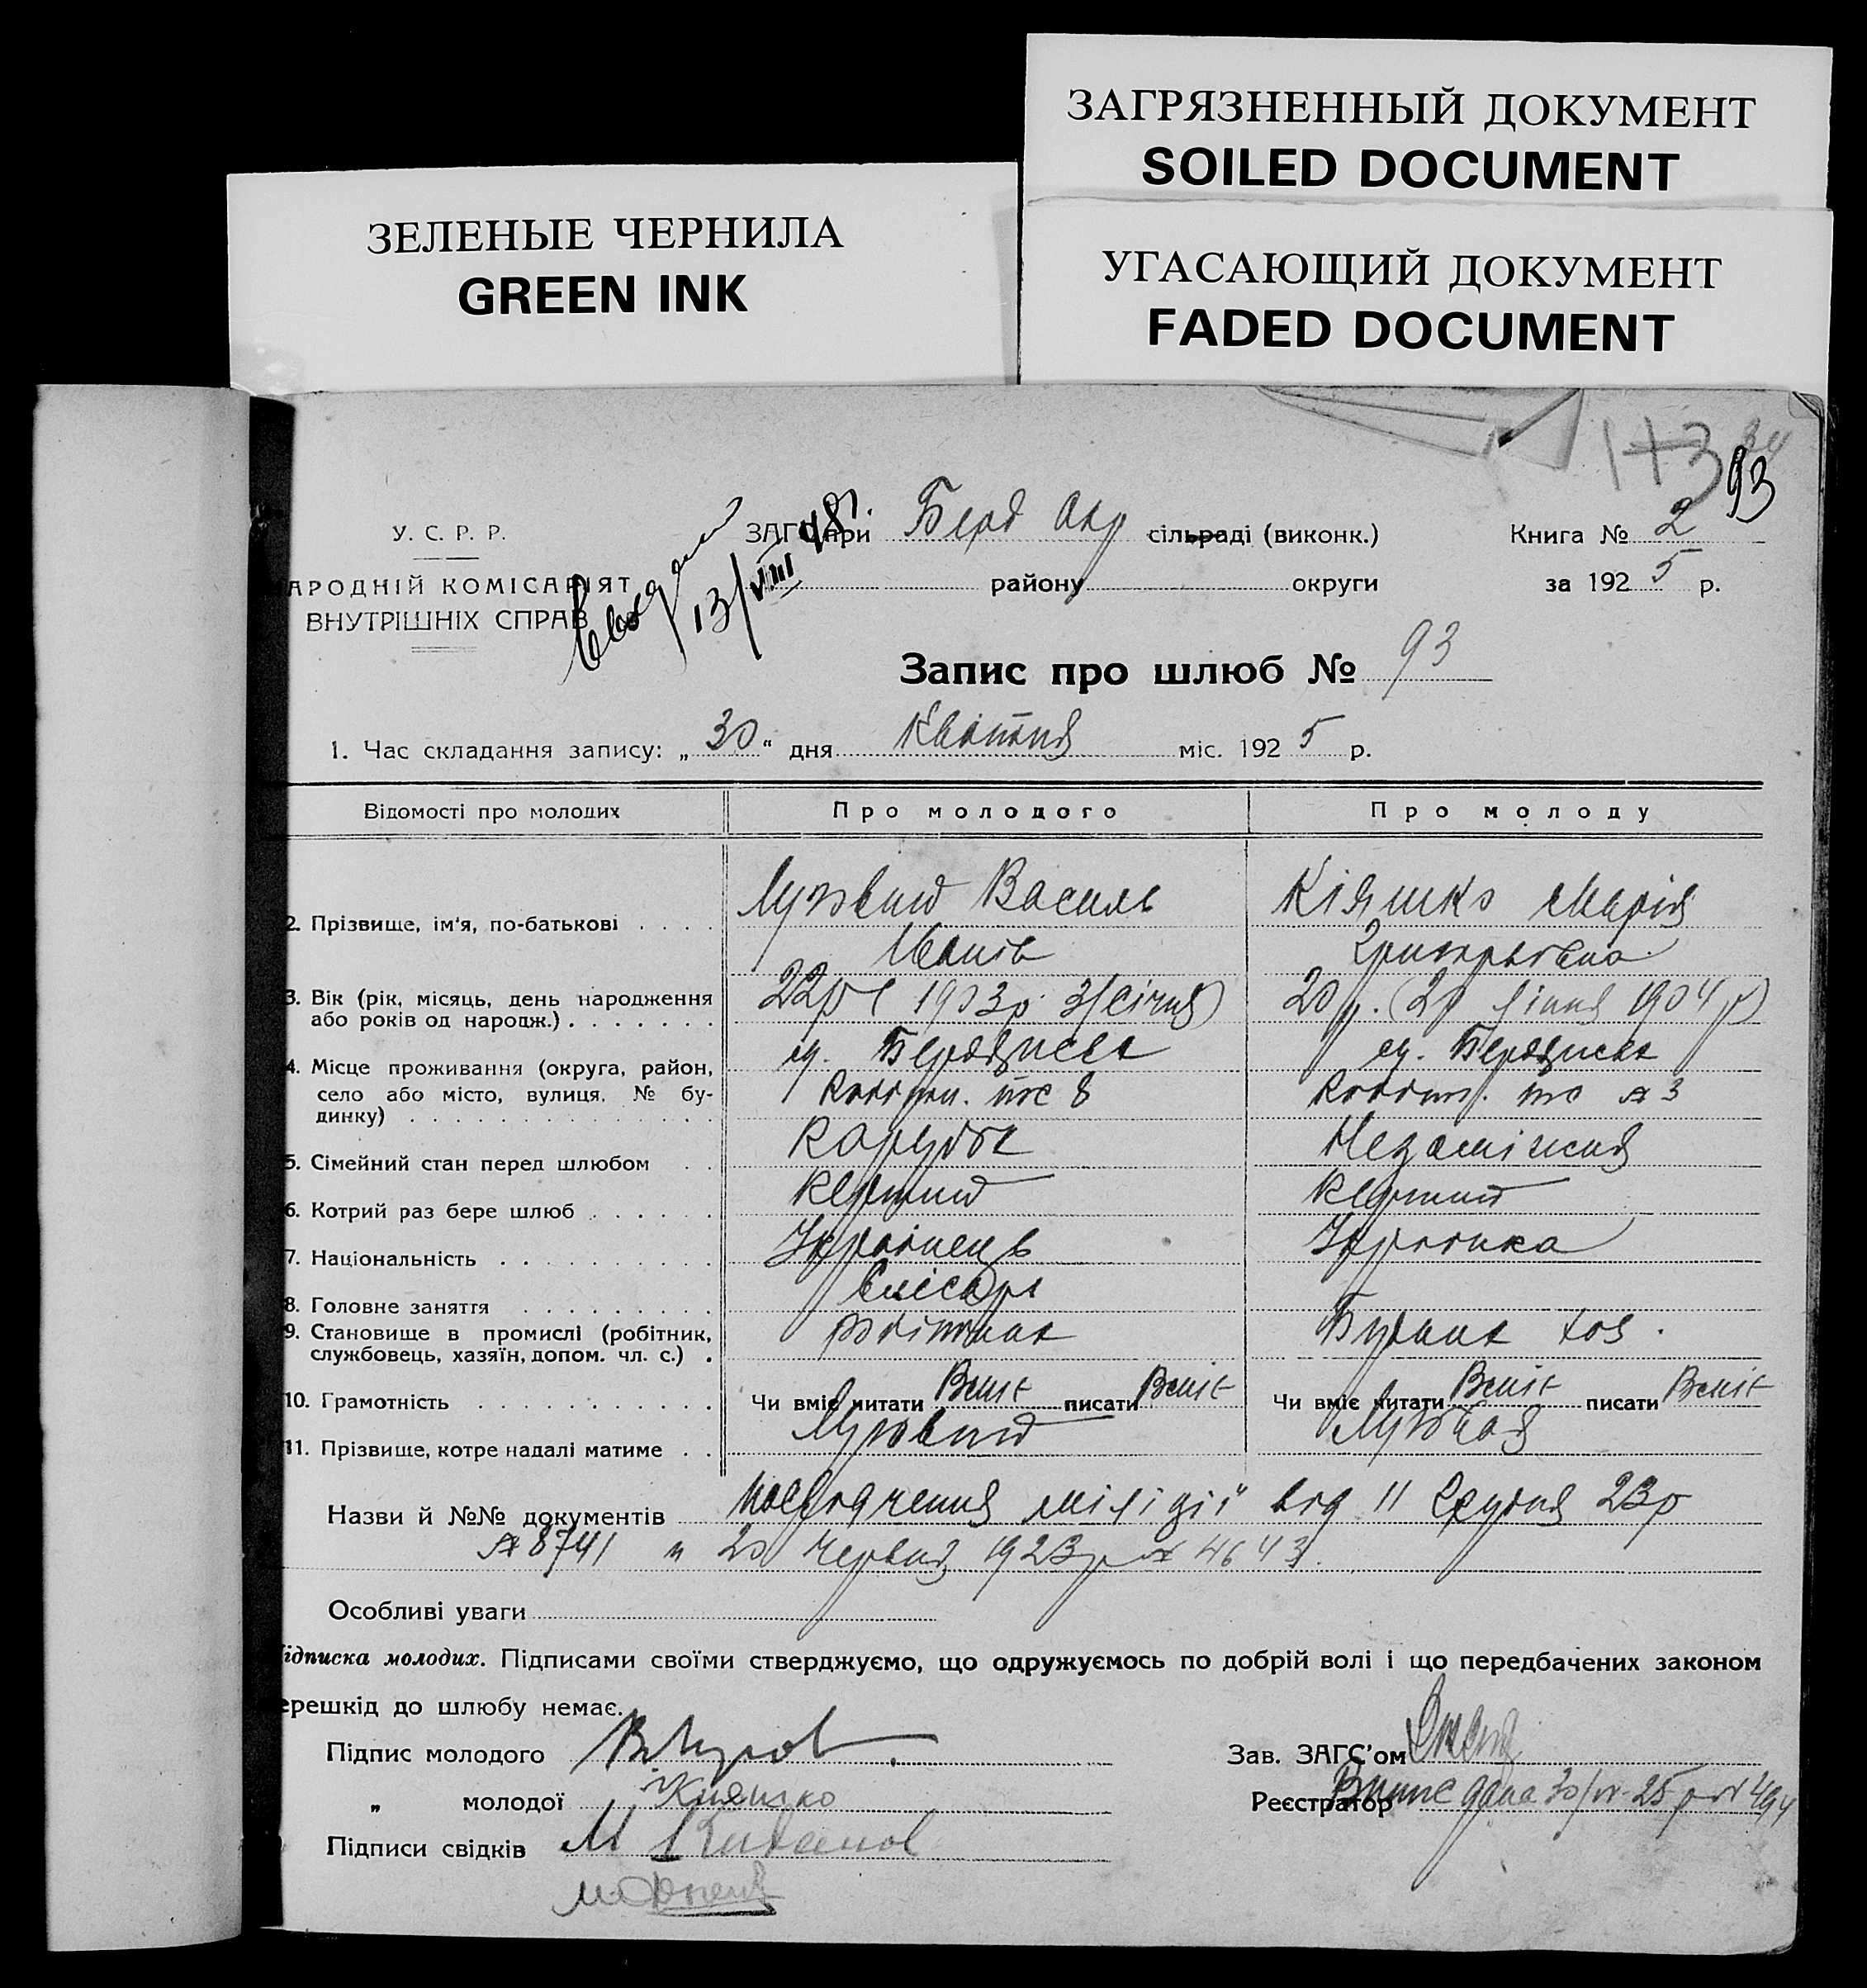 ЗАГРЯЗНЕННЫЙ ДОКУМЕНТ
SOILED DOCUMENT
ЗЕЛЕНЫЕ ЧЕРНИЛА
GREEN INK
УГАСАЮЩИЙ ДОКУМЕНТ
FADED DOCUMENT
93
У. С. Р. Р.
АРОДНІЙ КОМІСАРІЯТ
ВНУТРІШНІХ СПРАВ
13/VIII 48г.
ЗАГС при Берд Окр сільраді (виконк.)
району округи
Книга № 2
за 1925 р.
Запис про шлюб № 93
1. Час складання запису: „30“ дня Квітня міс. 1925 р.
Відомості про молодих Про молодого Про молоду
2. Прізвище, ім'я, по-батькові Василь Кіяшко Марія
Іванів Григорьевна
3. Вік (рік, місяць, день народження або років од народж.) 22р ( 1903р 3/січня) 20 р. (20 1904 р)
4. Місце проживання (округа, район, село або місто, вулиця, № будинку) м. Бердянськ м. Бердянськ
8 № 3
5. Сімейний стан перед шлюбом Незаміжня
6. Котрий раз бере шлюб Перший Перший
7. Національність Українець Українка
8. Головне заняття Слісарь
9. Становище в промислі (робітник, службовець, хазяїн, допом. чл. с.) робітник
10. Грамотність Чи вміє читати Вміє писати Вміє Чи вміє читати Вміє писати Вміє
11. Прізвище, котре надалі матиме
Назви й №№ документів Посвідчення міліції від 11 Грудня 23р
№ 8741 и 20 Червня 1923р № 4643
Особливі уваги
ідписка молодих. Підписами своїми стверджуємо, що одружуємось по добрій волі і що передбачених законом
ерешкід до шлюбу немає.
Підпис молодого
„ молодої Кияшко
Підписи свідків
Зав. ЗАГС'ом
Реєстратор